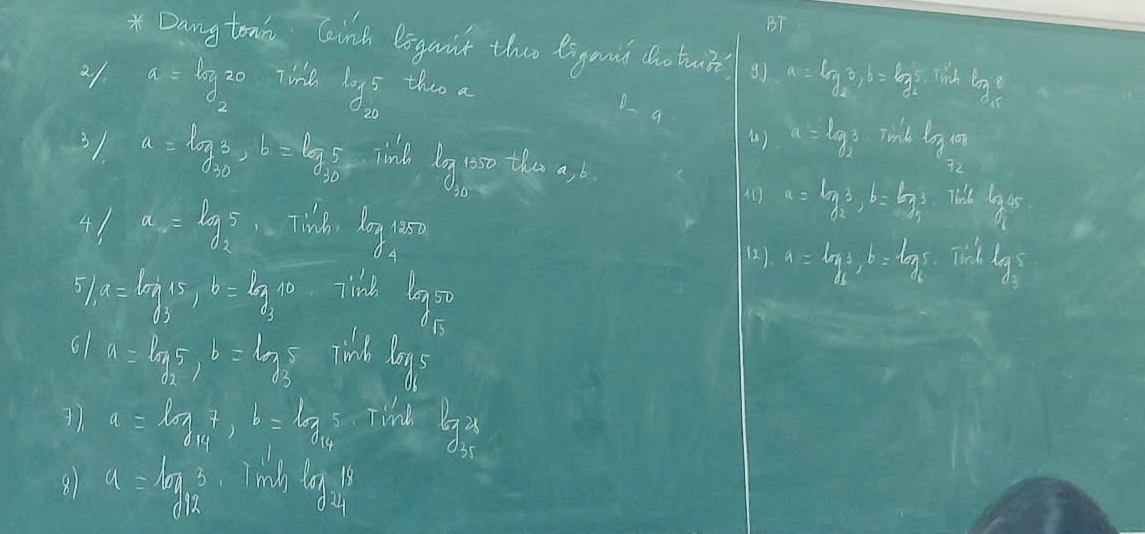 * Dạng toán. Tính lôgarit theo lôgarit cho trước
2/. a = log₂20 Tính log₂₀5 theo a
3/. a = log₃₀3, b = log₃₀5 Tính log₃₀1350 theo a, b.
4/. a = log₂5. Tính. log₄1250
5/. a = log₃15, b = log₃10 Tính log√₃50
6/ a = log₂5, b = log₃5 Tính log₆5
7). a = log₁₄7, b = log₁₄5. Tính log₃₅28
8) a = log₁₂3. Tính log₂₄18
BT
9.) a = log₂3, b = log₂5. Tính log₁₅8
10) a = log₂3. Tính log₇₂108
11) a = log₂3, b = log₅3. Tính log₆45.
12). a = log₆3, b = log₆5. Tính log₃5.